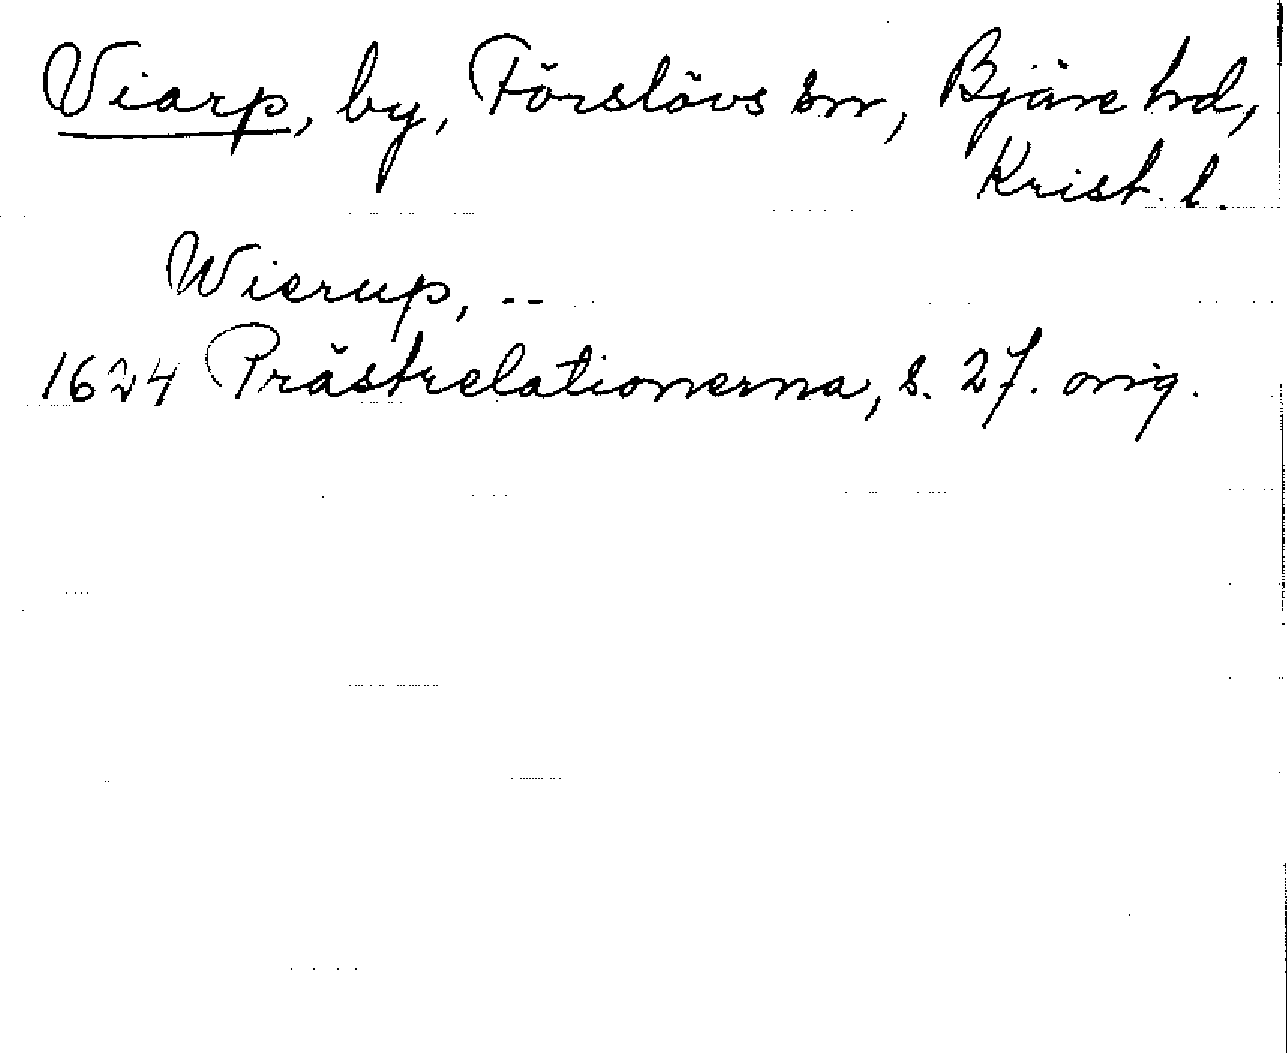 Viarp, by, Förslövs sn, Bjäre hd,
Krist. l.
Wierup, --
1624 Prästrelationerna, s. 27. orig.